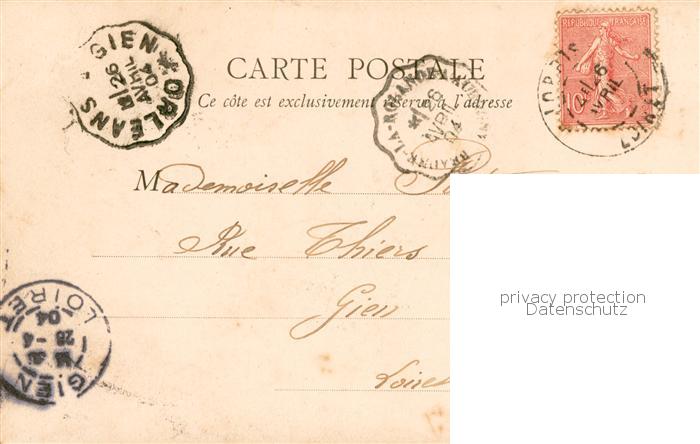 GIEN * ORLEANS
26
AVRIL
04
CARTE POSTALE
Ce côte est exclusivement réservé à l'adresse
BEAUNE-LA-ROLANDE
AVRIL
04
REPUBLIQUE FRANÇAISE
10
LORRIS
26
AVRIL
LOIRET
Mademoiselle
Rue Thiers
Gien
Loiret
GIEN
26-4
04
LOIRET
privacy protection
Datenschutz